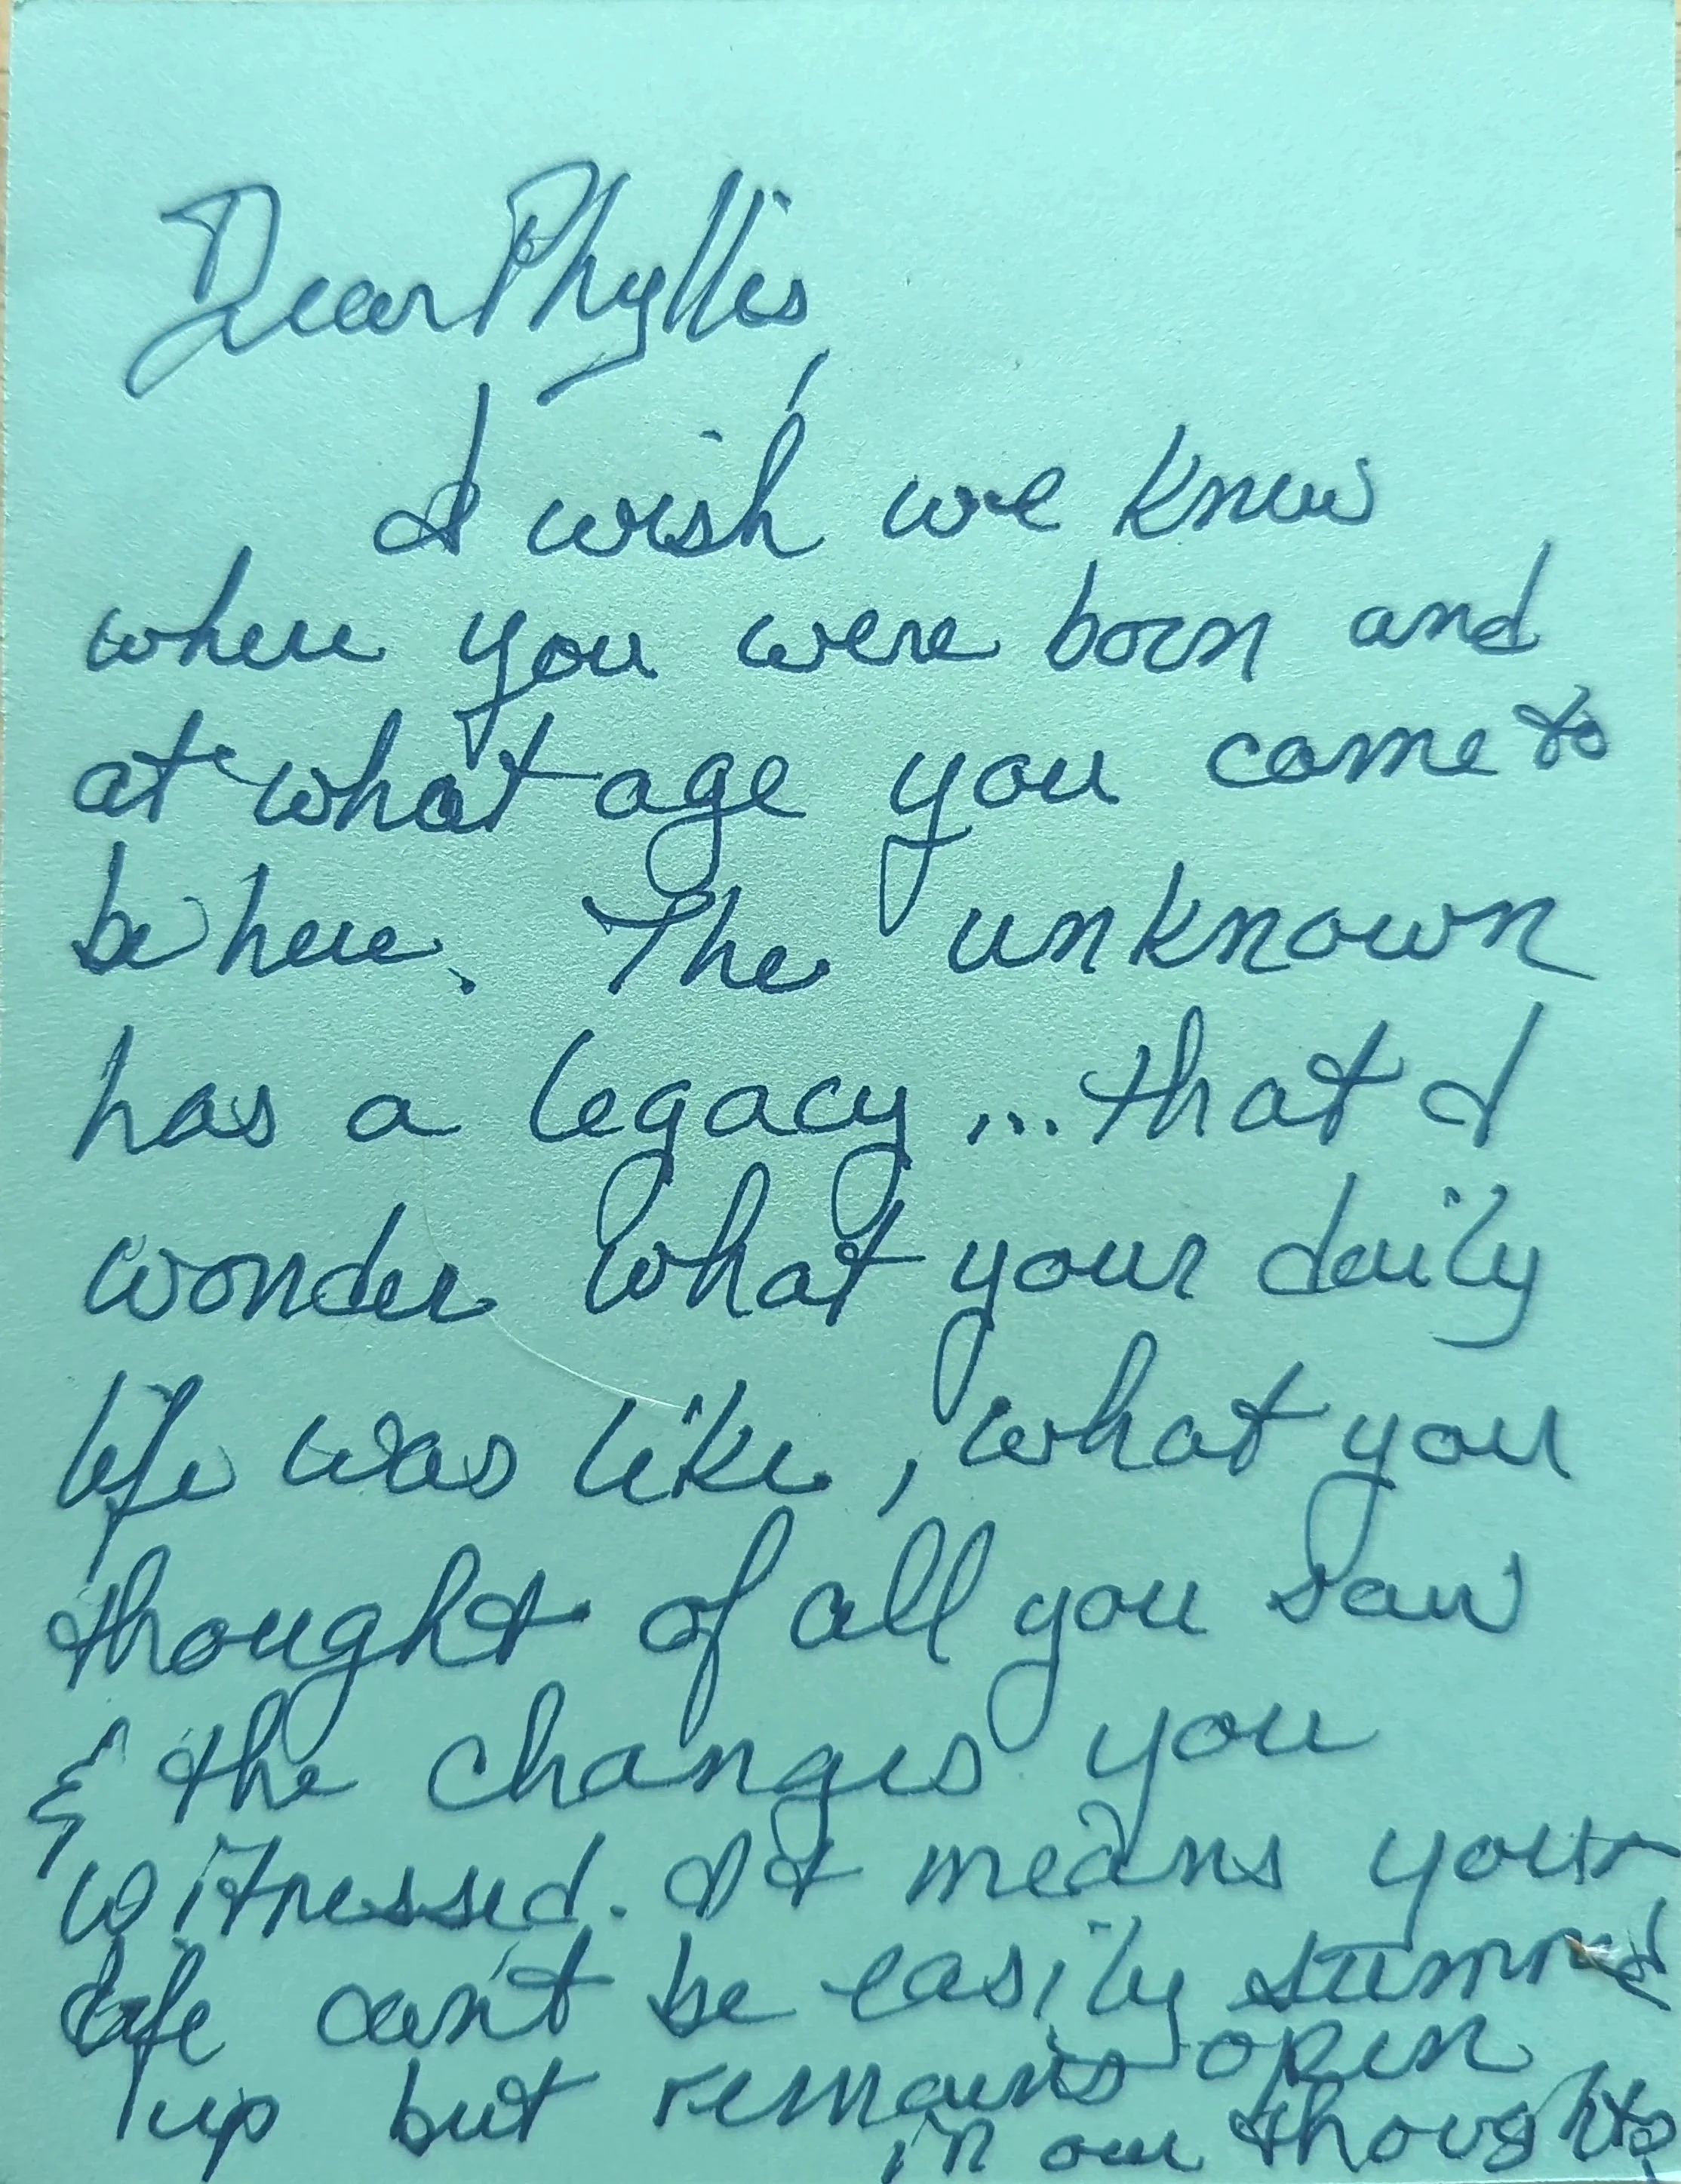 Dear Phyllis,
I wish we knew
where you were born and
at what age you came to
be here. The unknown
has a legacy... that I
wonder what your daily
life was like, what you
thought of all you saw
& the changes you
witnessed. It means your
life can't be easily summed
up but remains open
in our thoughts.